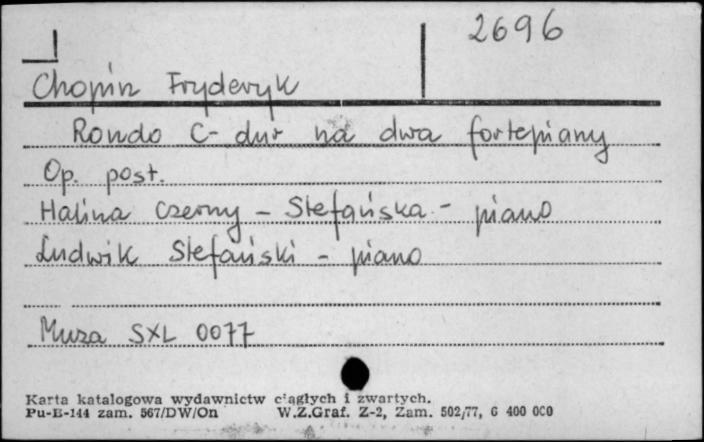 2696
Chopin Fryderyk
Rondo C-dur na dwa fortepiany
Op. post.
Halina Czerny - Stefańska - piano
Ludwik Stefański - piano
Muza SXL 0077
Karta katalogowa wydawnictw ciągłych i zwartych.
Pu-B-144 zam. 567/DW/On W.Z.Graf. Z-2, Zam. 502/77, 6 400 000